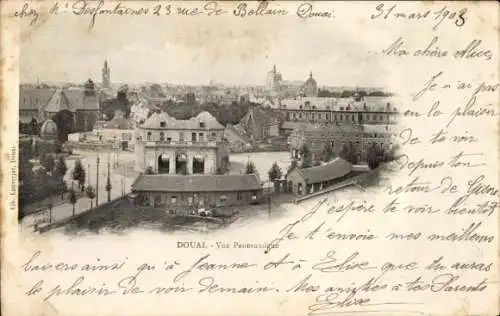 chez Mr Desfontaines 23 rue de Bellain Douai.
31 mars 1903
Ma chère Alice,
Je n'ai pas eu
le plaisir
de te voir
depuis ton
retour de
J'espère te voir bientôt
Je t'envoie mes meilleurs
baisers ainsi qu'à Jeanne et à Elise que tu auras
le plaisir de voir demain. Mes amitiés à tes Parents
DOUAI - Vue Panoramique
Lib. Lauverjat, Douai